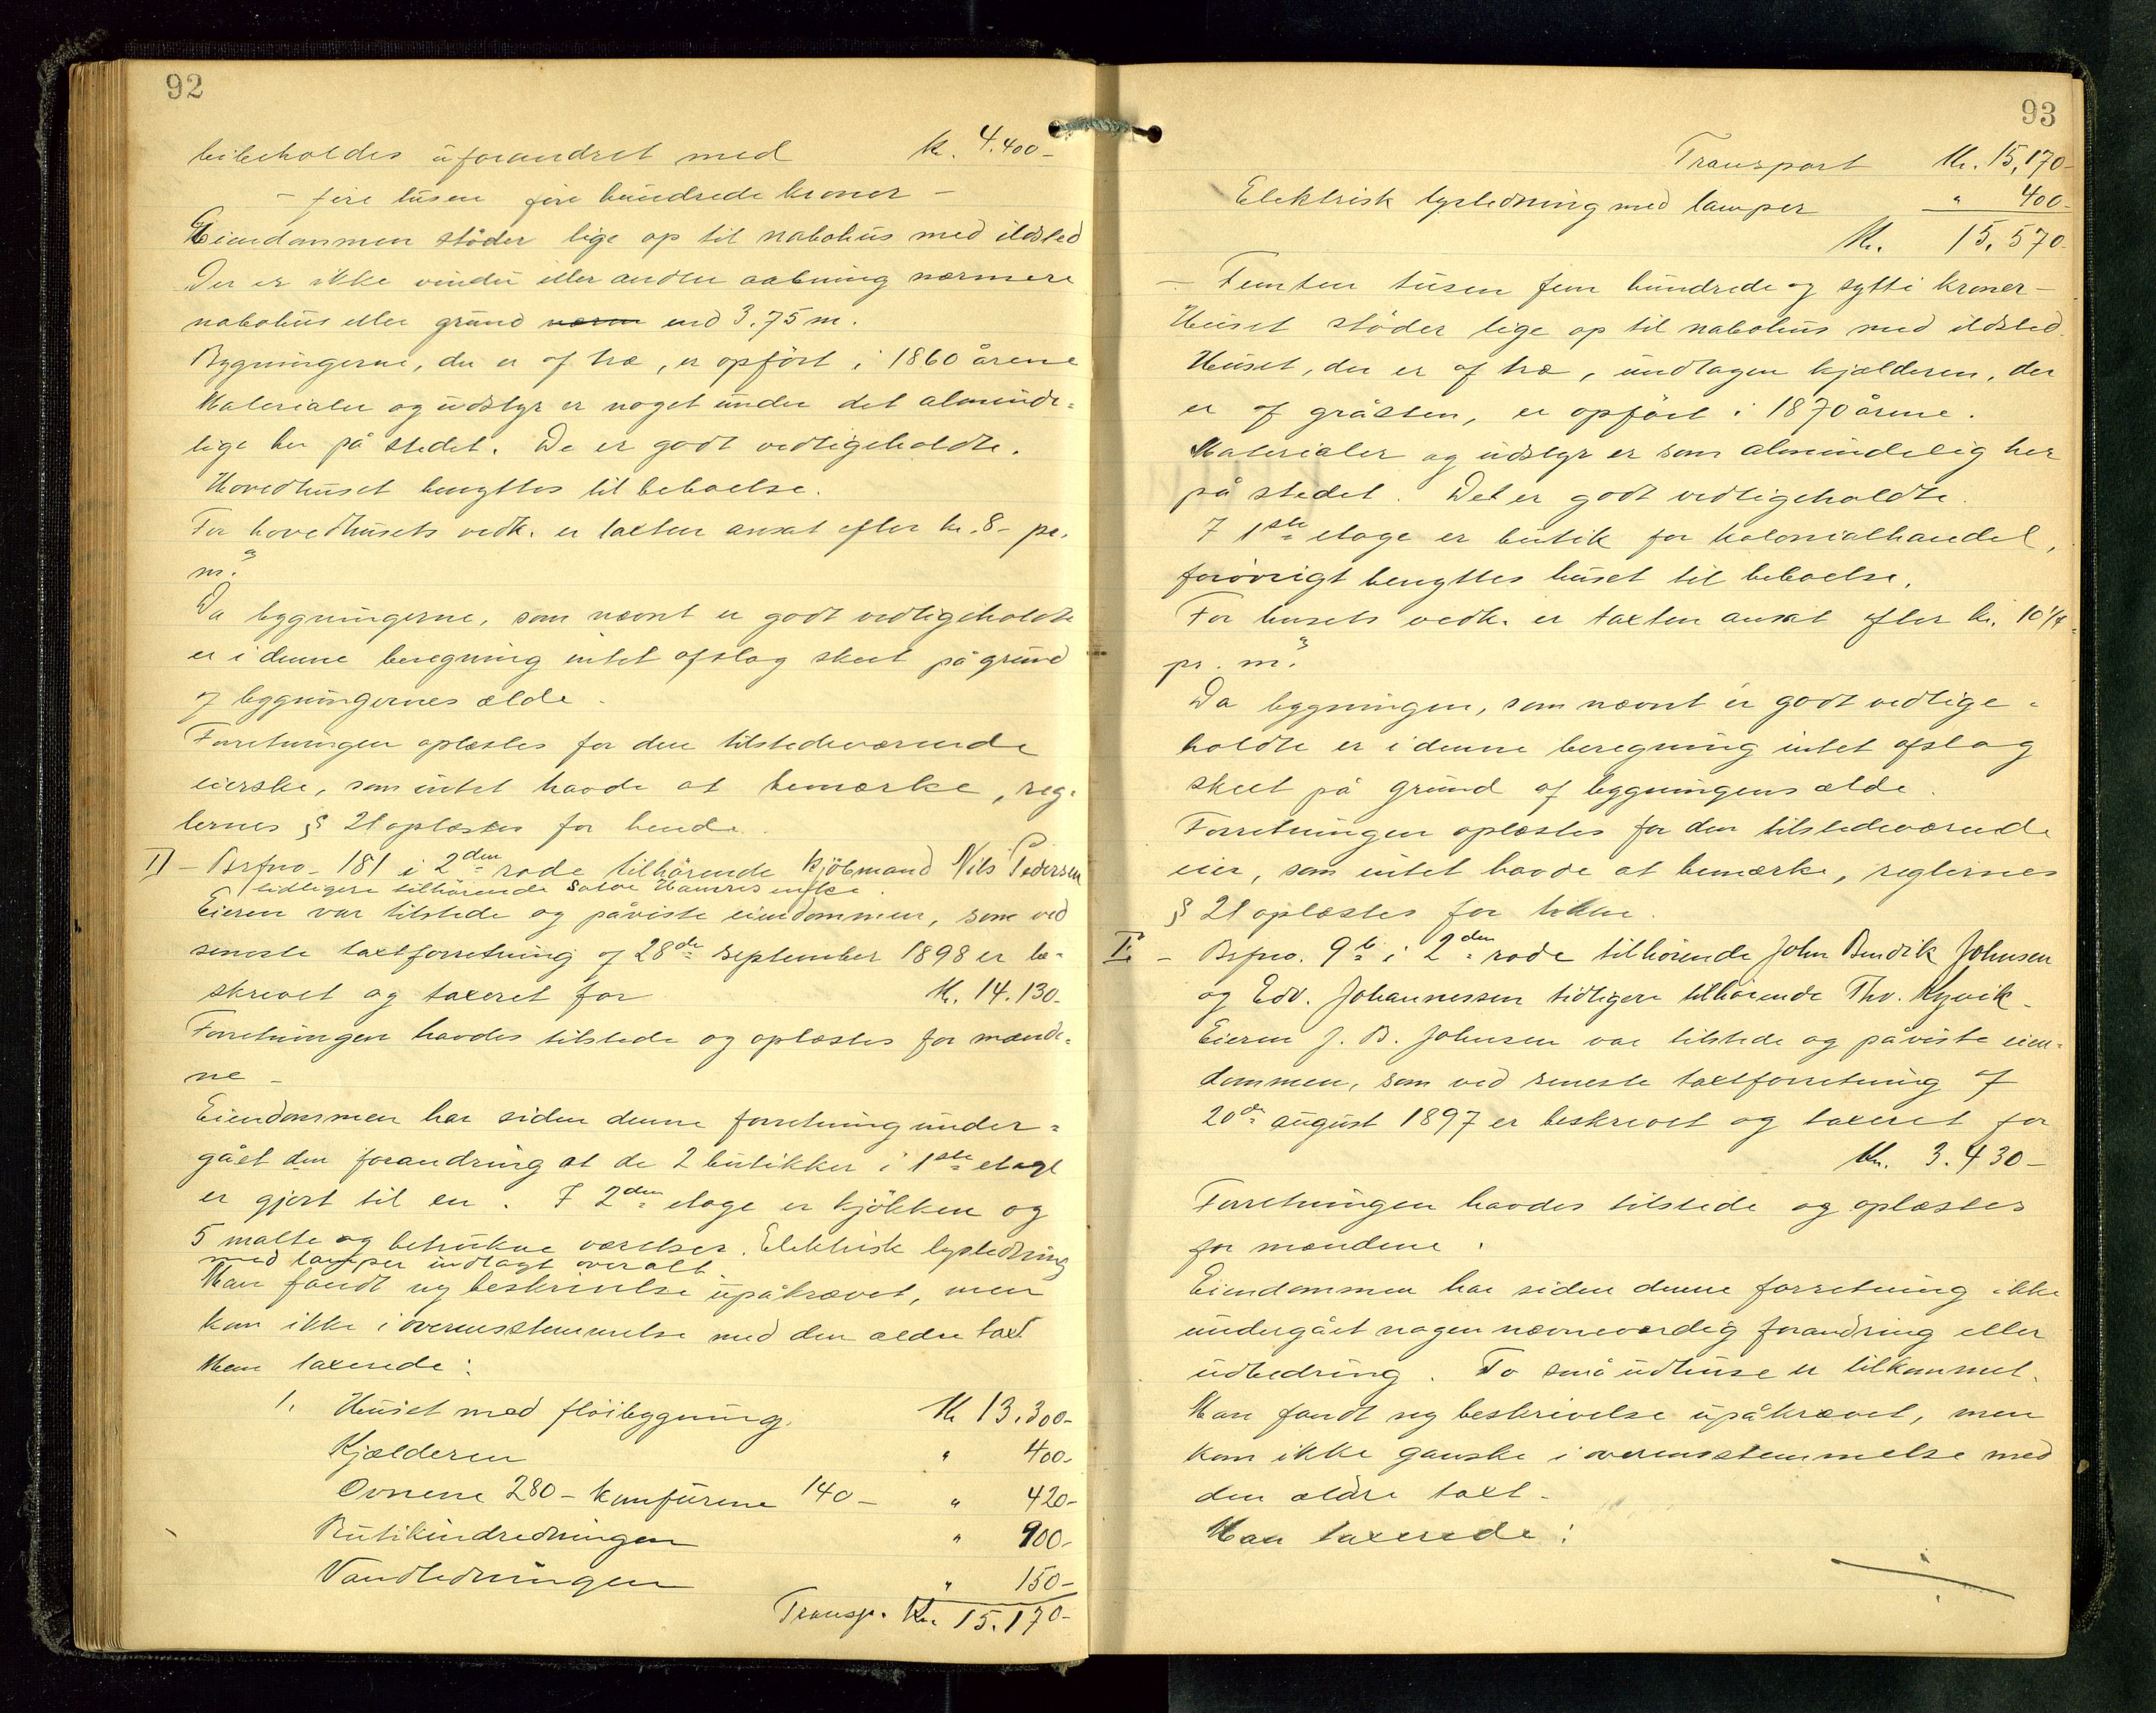 92
bibeholdes uforandret med kr. 4.400-
- fire tusen fire hundrede kroner -
Eiendommen støder lige op til nabohus med ildsted
Der er ikke vindu eller anden aabning nærmere
nabohus eller grund næren end 3.75 m.
Bygningerne, der er af træ, er opført i 1860 årene
Materialer og udstyr er noget under det alminde=
lige her på stedet. De er godt vedligeholdte.
Hovedhuset benyttes til beboelse.
For hovedhusets vedk. er taxten ansat efter kr. 8- pr.
m.³
Da bygningerne, som nævnt er godt vedligeholdte
er i denne beregning intet afslag skeet på grund
af bygningernes ælde.
Forretningen oplæstes for den tilstedeværende
eierske, som intet havde at bemærke, reg=
lernes § 21 oplæstes for hende.
II - Brfno. 181 i 2den rode tilhörende kjöbmand Nils Pedersen
tidligere tilhörende Salve Hamres enke.
Eieren var tilstede og påviste eiendommen, som ved
seneste taxtforretning af 28de september 1898 er be=
skrevet og taxeret for Kr. 14.130-
Forretningen havdes tilstede og oplæstes for mænde=
ne -
Eiendommen har siden denne forretning under=
gået den forandring at de 2 butikker i 1ste etage
er gjort til en. I 2den etage er kjökken og
5 malte og betrukne værelser. Elektrisk lysledning
med lamper indlagt overalt.
Man fandt ny beskrivelse upåkrævet, men
kom ikke i overensstemmelse med den ældre taxt
Man taxerede:
1. Huset med flöibygning Kr 13.300-
Kjælderen " 400-
Ovnene 280- Komfurene 140- " 420-
Butikindredningen " 900-
Vandledningen " 150-
Transp. Kr. 15.170-
93
Transport Kr. 15,170-
Elektrisk lysledning med lamper " 400-
Kr. 15.570-
- Femten tusen fem hundrede og sytti kroner -
Huset støder lige op til nabohus med ildsted.
Huset, der er af træ, undtagen kjælderen, der
er af gråsten, er opført i 1870 årene.
Materialer og udstyr er som almindelig her
på stedet. Det er godt vedligeholdte.
I 1ste etage er butik for kolonialhandel,
forövrigt benyttes huset til beboelse.
For husets vedk. er taxten ansat efter kr. 10 1/4
pr. m.³
Da bygningen, som nævnt er godt vedlige=
holdte er i denne beregning intet afslag
skeet på grund af bygningens ælde.
Forretningen oplæstes for den tilstedeværende
eier, som intet havde at bemærke, reglernes
§ 21 oplæstes for ham.
I. - Brfno. 9b i 2den rode tilhörende John Bendik Johnsen
og Edv. Johannessen tidligere tilhörende Thv. Kyvik -
Eieren J. B. Johnsen var tilstede og påviste eien=
dommen, som ved seneste taxtforretning af
20de august 1897 er beskrevet og taxeret for
Kr. 3.430-
Forretningen havdes tilstede og oplæstes
for mændene.
Eiendommen har siden denne forretning ikke
undergået nogen nævneværdig forandring eller
udbedring. To små udhuse er tilkommet.
Man fandt ny beskrivelse upåkrævet, men
kom ikke ganske i overensstemmelse med
den ældre taxt -
Man taxerede: